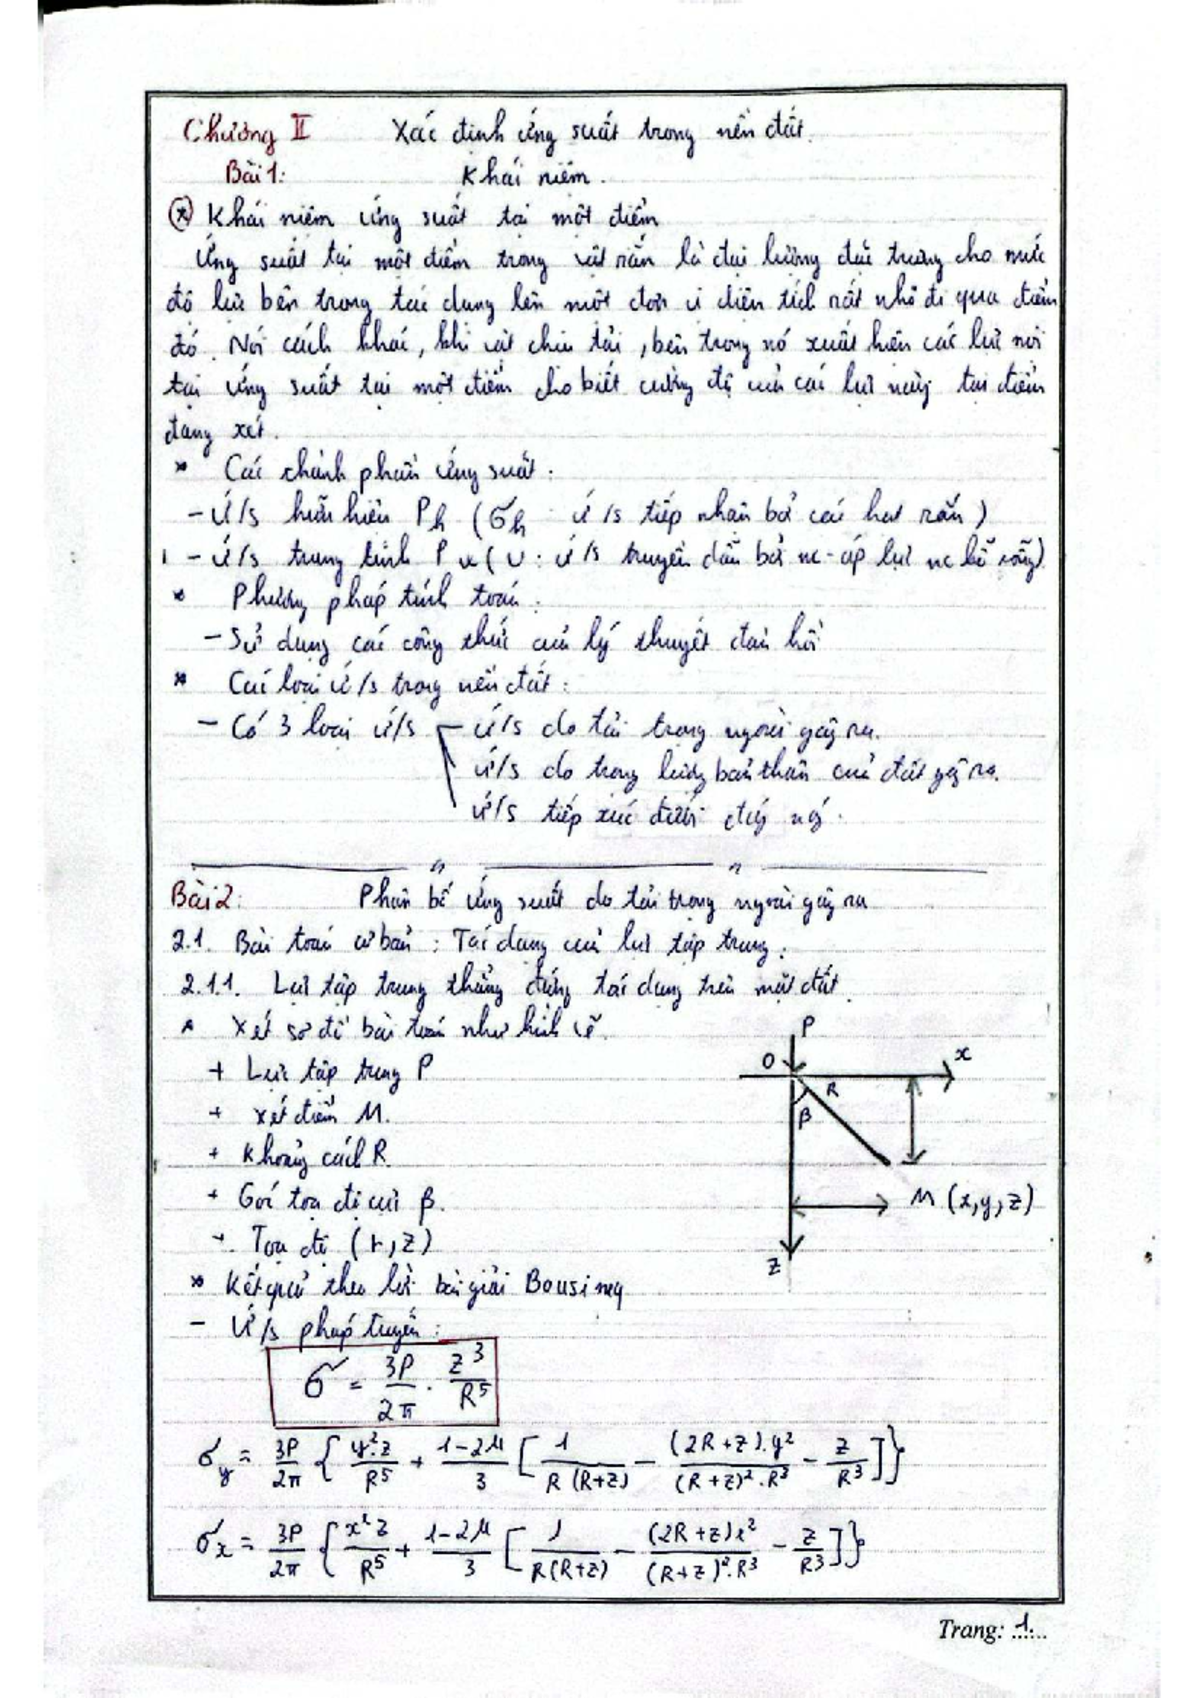 Chương II Xác định ứng suất trong nền đất.
Bài 1: Khái niệm.
* Khái niệm ứng suất tại một điểm
Ứng suất tại một điểm trong vật rắn là đại lượng đặc trưng cho mức
độ lực bên trong tác dụng lên một đơn vị diện tích rất nhỏ đi qua điểm
đó. Nói cách khác, khi vật chịu tải, bên trong nó xuất hiện các lực nội
tại ứng suất tại một điểm cho biết cường độ của các lực này tại điểm
đang xét.
* Các thành phần ứng suất:
- Ư/s hữu hiệu Ph (σh : ư/s tiếp nhận bở các hạt rắn)
- Ư/s trung tính Pu (U: ư/s truyền dẫn bở nc - áp lực nc lỗ rỗng)
* Phương pháp tính toán:
- Sử dụng các công thức của lý thuyết đàn hồi
* Các loại ư/s trong nền đất:
- Có 3 loại ư/s ư/s do tải trọng ngoài gây ra.
ư/s do trọng lượng bản thân của đất gây ra.
ư/s tiếp xúc dưới đáy
Bài 2: Phân bố ứng suất do tải trọng ngoài gây ra
2.1. Bài toán cơ bản: Tác dụng của lực tập trung.
2.1.1. Lực tập trung thẳng đứng tác dụng trên mặt đất.
* Xét sơ đồ bài toán như hình vẽ.
+ Lực tập trung P
+ Xét điểm M.
+ Khoảng cách R.
+ Góc tọa độ cực β.
+ Tọa độ (r, z)
P
O
x
R
β
M (x, y, z)
z
* Kết quả theo lời bài giải Bousineq
- Ư/s pháp tuyến:
σ = 3P/2π . z³/R⁵
σy = 3P/2π { y².z/R⁵ + 1-2μ/3 [ 1/R(R+z) - (2R+z).y²/(R+z)².R³ - z/R³ ]}
σx = 3P/2π { x²z/R⁵ + 1-2μ/3 [ 1/R(R+z) - (2R+z)x²/(R+z)².R³ - z/R³ ]}
Trang: 1